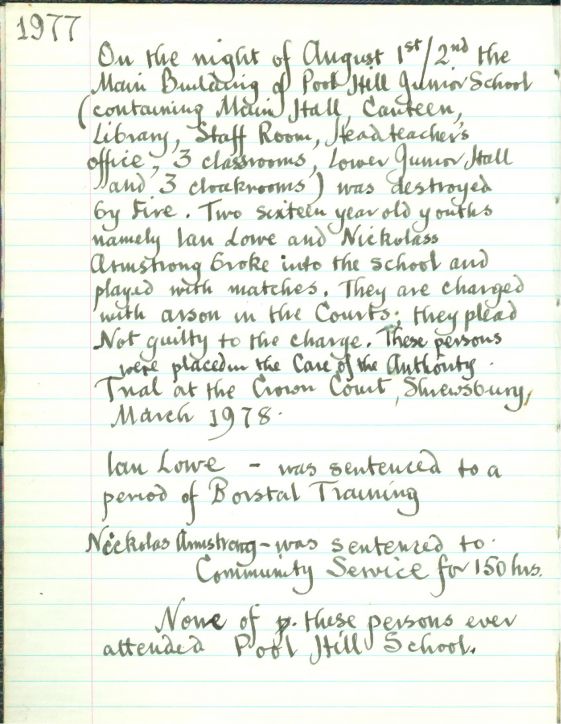 1977
On the night of August 1st/2nd the
Main Building of Pool Hill Junior School
(containing Main Hall, Canteen,
Library, Staff Room, Headteacher's
office, 3 classrooms, Lower Junior Hall
and 3 cloakrooms) was destroyed
by Fire. Two sixteen year old youths
namely Ian Lowe and Nickolass
Armstrong broke into the school and
played with matches. They are charged
with arson in the Courts; they plead
Not guilty to the charge. These persons
were placed in the Care of the Authority.
Trial at the Crown Court, Shrewsbury,
March 1978.
Ian Lowe - was sentenced to a
period of Borstal Training
Nickolas Armstrong - was sentenced to
Community Service for 150 hrs.
None of p. these persons ever
attended Pool Hill School.